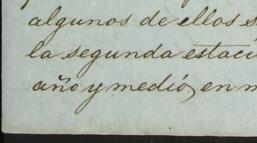 algunos de ellos s
la segunda estaci
año y medió, en m